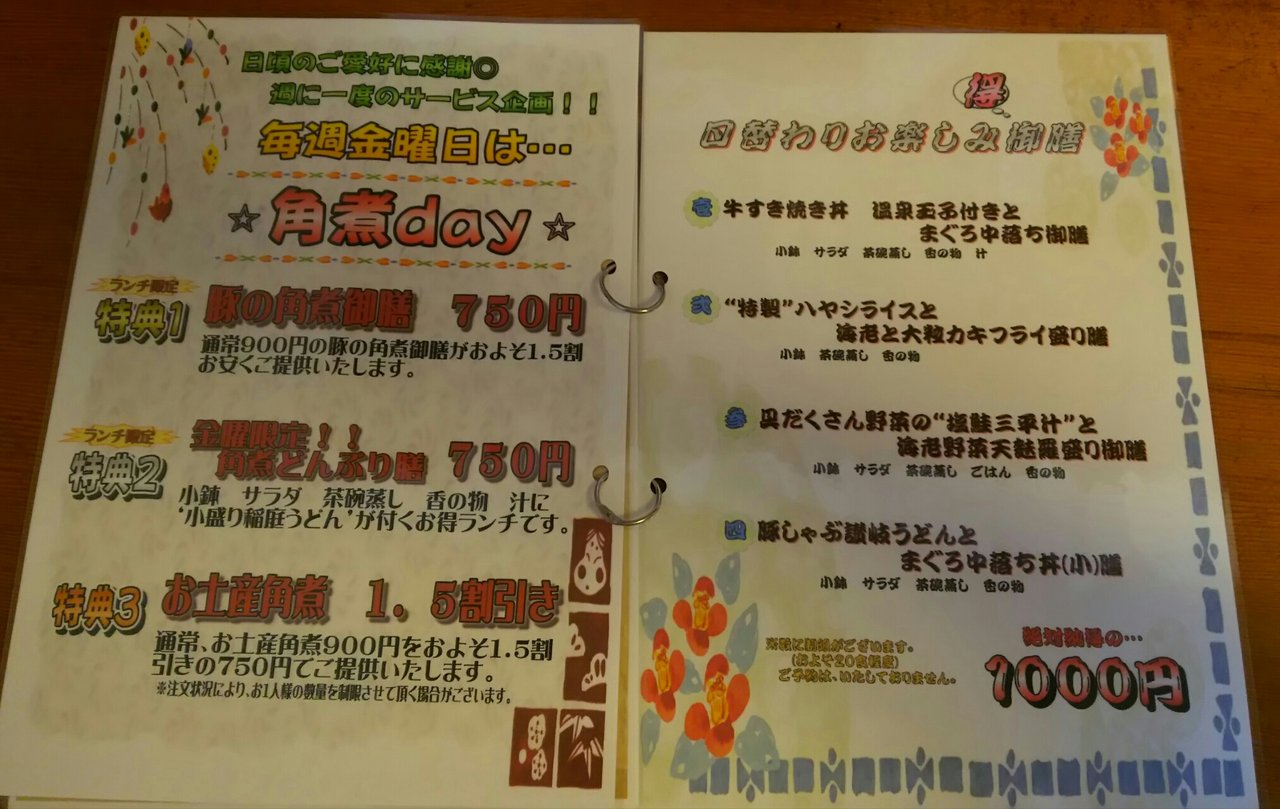 日頃のご愛好に感謝◎
週に一度のサービス企画！！
毎週金曜日は…
☆角煮day☆
ランチ限定
特典1
豚の角煮御膳 750円
通常900円の豚の角煮御膳がおよそ1.5割
お安くご提供いたします。
ランチ限定
特典2
金曜限定！！
角煮どんぶり膳 750円
小鉢 サラダ 茶碗蒸し 香の物 汁に
‘小盛り稲庭うどん’が付くお得ランチです。
特典3
お土産角煮 1．5割引き
通常、お土産角煮900円をおよそ1.5割
引きの750円でご提供いたします。
※注文状況により、お1人様の数量を制限させて頂く場合がございます。
得
日替わりお楽しみ御膳
壱 牛すき焼き丼 温泉玉子付きと
まぐろ中落ち御膳
小鉢 サラダ 茶碗蒸し 香の物 汁
弐 “特製”ハヤシライスと
海老と大粒カキフライ盛り膳
小鉢 茶碗蒸し 香の物
参 具だくさん野菜の“塩鮭三平汁”と
海老野菜天麩羅盛り御膳
小鉢 サラダ 茶碗蒸し ごはん 香の物
四 豚しゃぶ讃岐うどんと
まぐろ中落ち丼(小)膳
小鉢 サラダ 茶碗蒸し 香の物
※数に制限がございます。
(およそ20食程度)
ご予約は、いたしておりません。
絶対お得の…
1000円